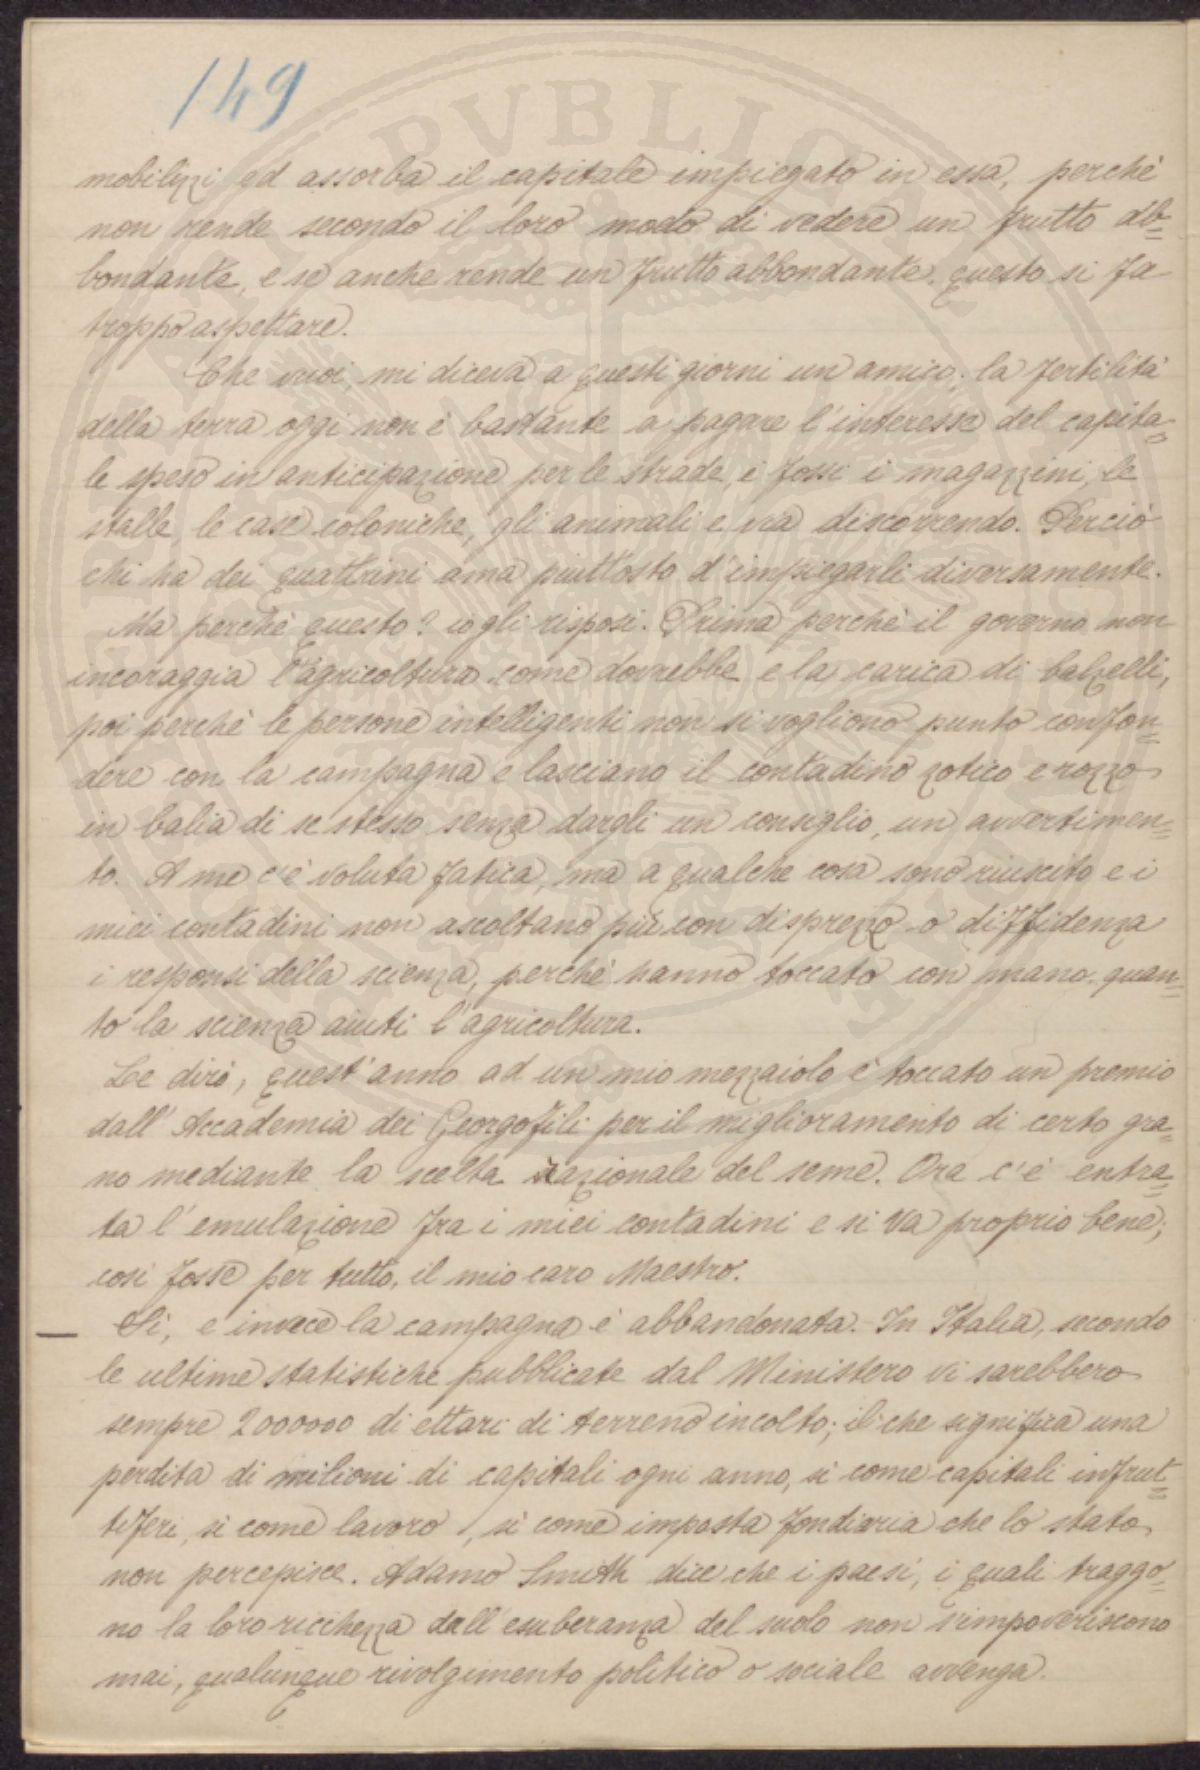 149
mobilizzi ed assorba il capitale impiegato in essa, perchè
non rende secondo il loro modo di vedere un frutto ab=
bondante, e se anche rende un frutto abbondante, questo si fa
troppo aspettare.
Che vuoi, mi diceva a questi giorni un amico, la fertilità
della terra oggi non è bastante a pagare l'interesse del capita=
le speso in anticipazione per le strade, i fossi i magazzini, le
stalle le case coloniche, gli animali e via discorrendo. Perciò
chi ha dei quattrini ama piuttosto d'impiegarli diversamente.
Ma perchè questo? io gli risposi. Prima perchè il governo non
incoraggia l'agricoltura come dovrebbe e la carica di balzelli,
poi perchè le persone intelligenti non si vogliono punto confon=
dere con la campagna e lasciano il contadino zotico e rozzo
in balia di se stesso senza dargli un consiglio, un avvertimen=
to. A me c'è voluta fatica, ma a qualche cosa sono riuscito e i
miei contadini non ascoltano più con disprezzo o diffidenza
i responsi della scienza, perchè hanno toccato con mano quan=
to la scienza aiuti l'agricoltura.
Le dirò, quest'anno ad un mio mezzaiolo è toccato un premio
dall'Accademia dei Georgofili per il miglioramento di certo gra=
no mediante la scelta razionale del seme. Ora c'è entra=
ta l'emulazione fra i miei contadini e si va proprio bene;
così fosse per tutto, il mio caro Maestro.
— Sì, e invece la campagna è abbandonata. In Italia, secondo
le ultime statistiche pubblicate dal Ministero vi sarebbero
sempre 2000000 di ettari di terreno incolto; il che significa una
perdita di milioni di capitali ogni anno, sì come capitali infrut=
tiferi, sì come lavoro, sì come imposta fondiaria che lo stato
non percepisce. Adamo Smith dice che i paesi, i quali traggo=
no la loro ricchezza dall'esuberanza del suolo non s'impoveriscono
mai, qualunque rivolgimento politico o sociale avvenga.